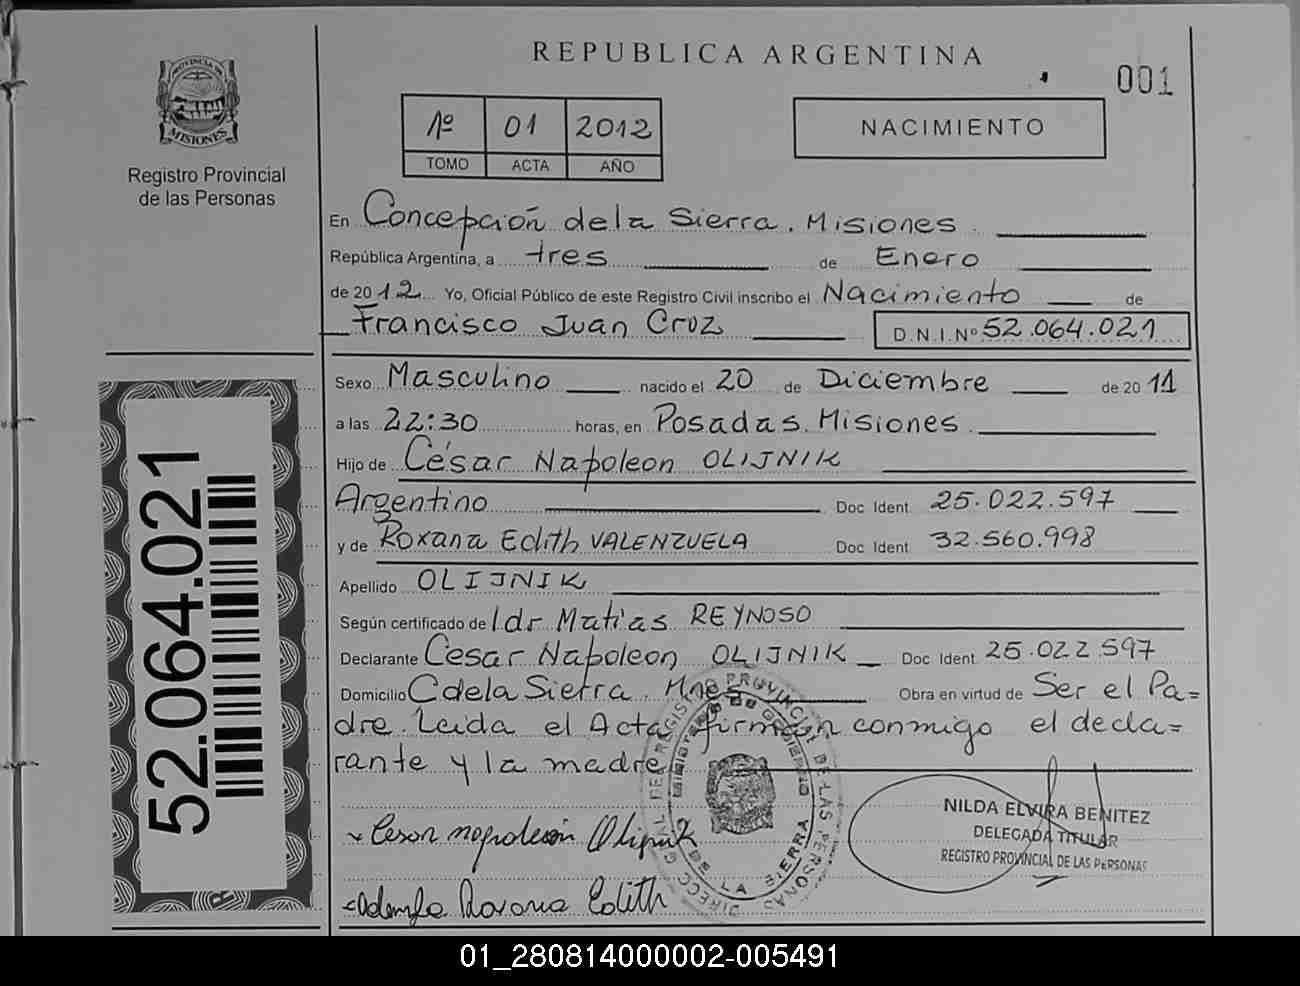 REPUBLICA ARGENTINA
001
PROVINCIA DE
MISIONES
Registro Provincial
de las Personas
1º 01 2012
TOMO ACTA AÑO
NACIMIENTO
En Concepción de la Sierra. Misiones.
República Argentina, a tres de Enero
de 2012 Yo, Oficial Público de este Registro Civil inscribo el Nacimiento de
Francisco Juan Cruz D.N.I.Nº 52.064.021
Sexo Masculino nacido el 20 de Diciembre de 2011
a las 22:30 horas, en Posadas. Misiones.
Hijo de César Napoleon OLIJNIK
Argentino Doc Ident 25.022.597
y de Roxana Edith VALENZUELA Doc Ident 32.560.998
Apellido OLIJNIK
Según certificado de Idr Matias REYNOSO
Declarante César Napoleon OLIJNIK Doc Ident 25.022.597
Domicilio C de la Sierra. Mnes Obra en virtud de Ser el Pa=
dre. Leida el Acta firman conmigo el decla=
rante y la madre
NILDA ELVIRA BENITEZ
DELEGADA TITULAR
REGISTRO PROVINCIAL DE LAS PERSONAS
Cesar napoleón Olijnik
Roxana Edith
DE LA SIERRA
52.064.021
01_280814000002-005491